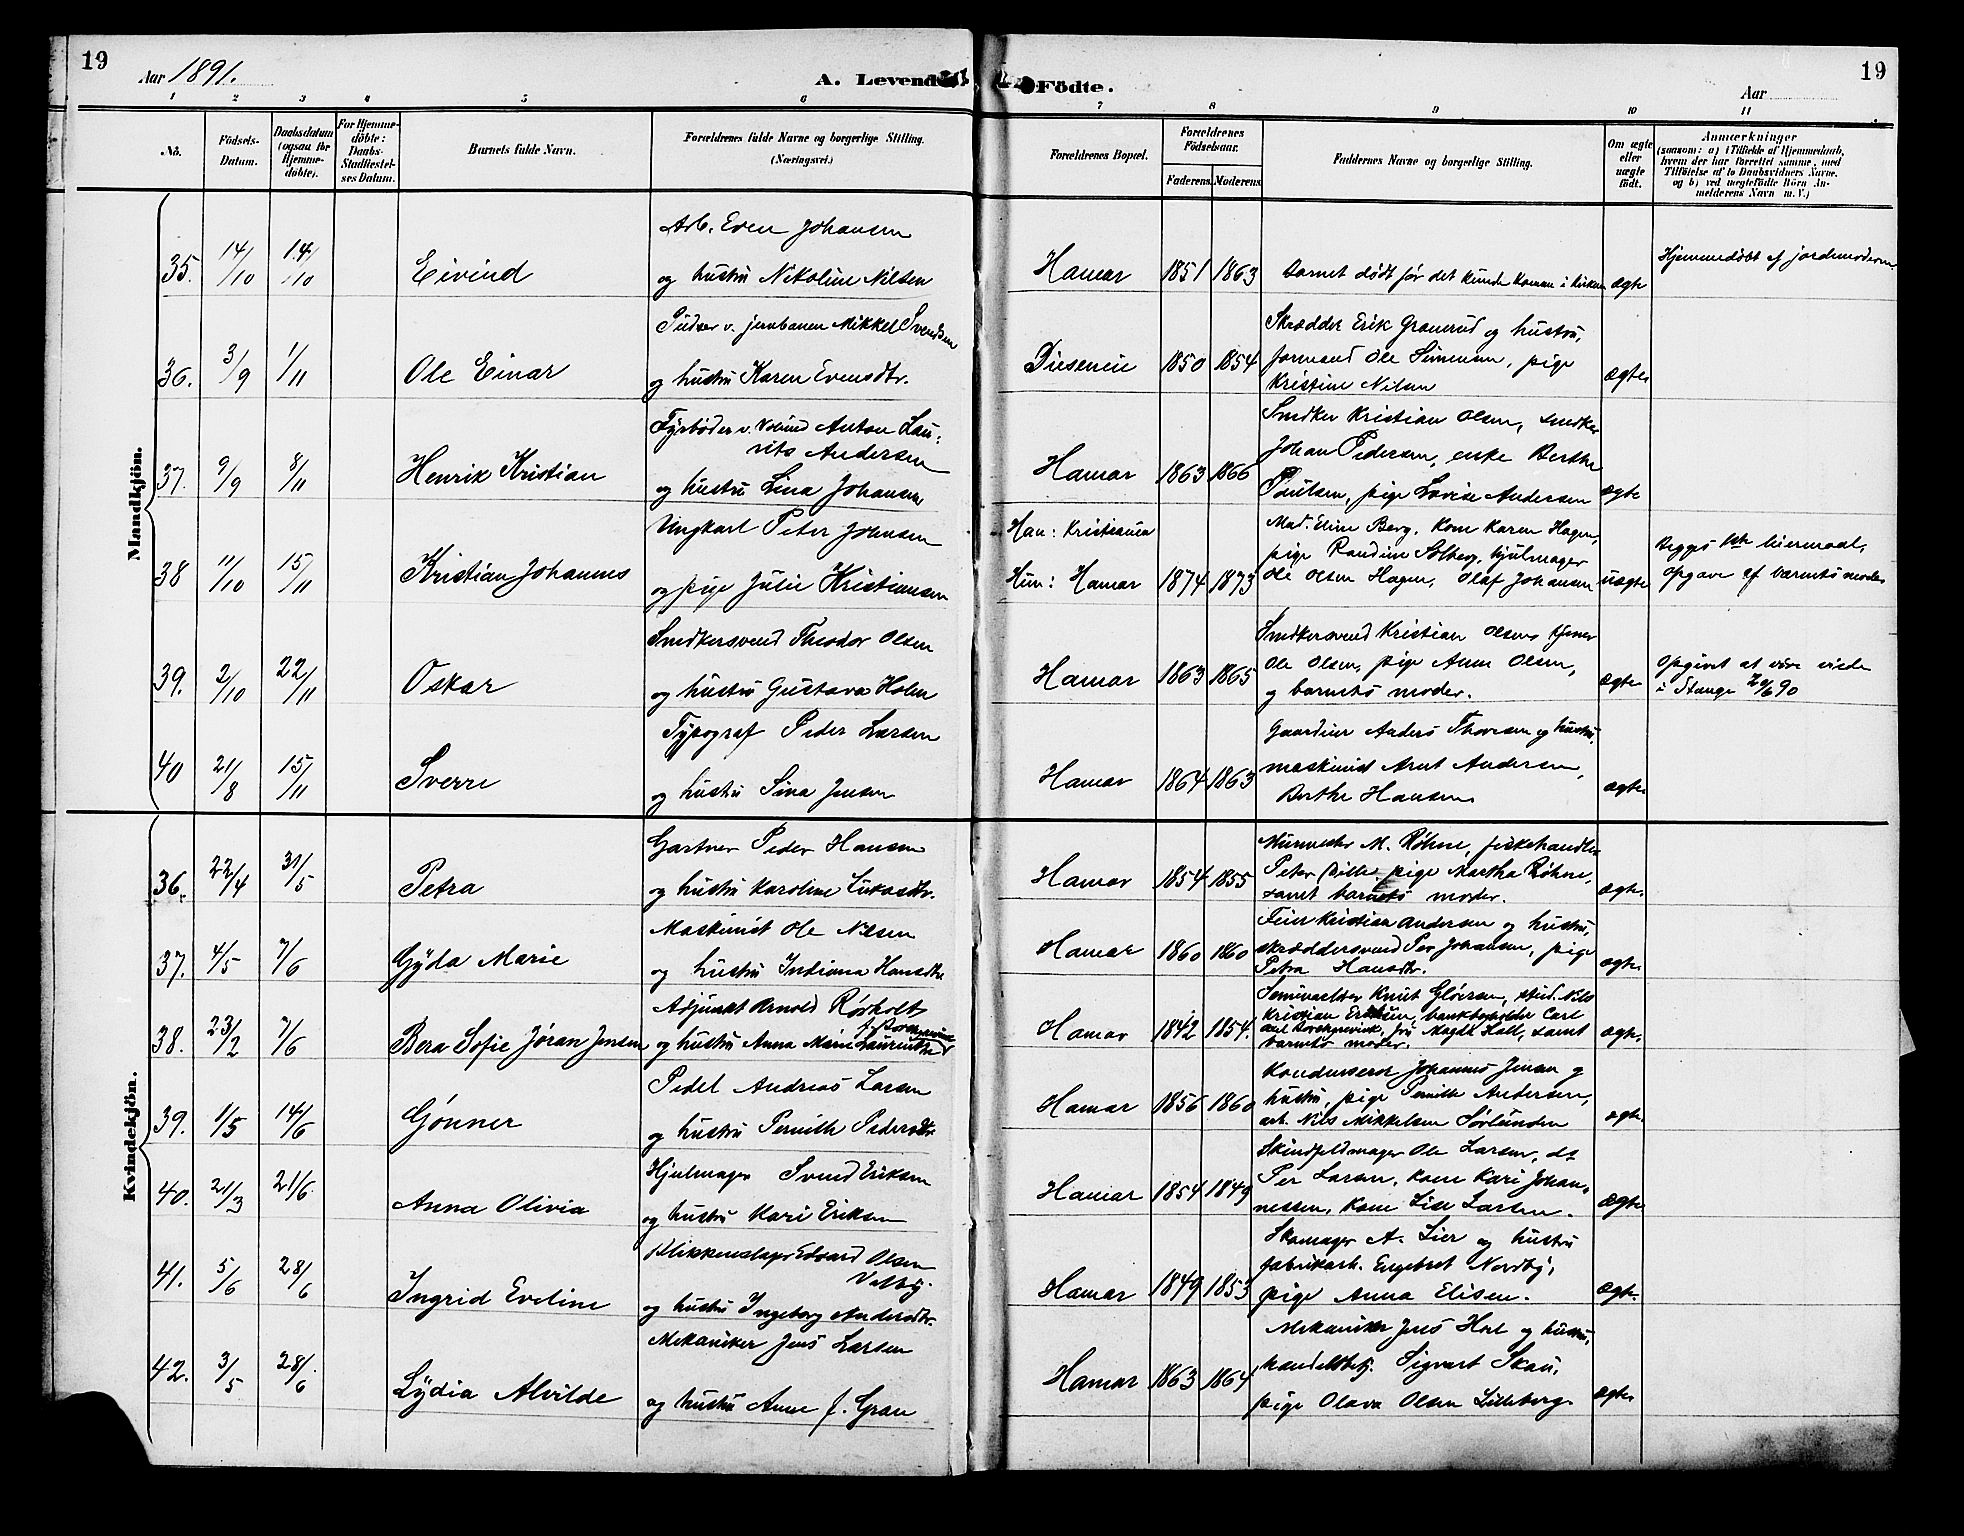 19
Aar 1891.
A. Levende
Födte.
Aar
19
1 2 3 4 5 6 7 8 9 10 11
No.
Födsels-Datum.
Daabsdatum (ogsaa for Hjemmedöbte).
For Hjemmedöbte: Daabs-Stadfæstelses Datum.
Barnets fulde Navn.
Forældrenes fulde Navne og borgerlige Stilling. (Næringsvei.)
Forældrenes Bopæl.
Forældrenes Födselsaar.
Faderens. Moderens.
Faddernes Navne og borgerlige Stilling.
Om ægte eller uægte födt.
Anmærkninger
(saasom: a) i Tilfælde af Hjemmedaab, hvem der har forrettet samme, med Tilföielse af to Daabsvidners Navne, og b) ved uægtefödte Börn Anmelderens Navn m. V.)
Mandkjön.
35. 14/10 14/10 Eivind
Arb. Even Johansen
og hustru Nikoline Nilsen
Hamar 1851 1863
Barnet dødt før det kunde komme i kirken ægte
Hjemmedøbt af jordemoderen
36. 3/9 1/11 Ole Einar
Pudser v. jernbanen Mikkel Svendsen
og hustru Karen Evensdtr.
1850 1854
Skrædder Erik Granerud og hustru,
formand Ole Simensen, pige
Kristine Nilsen ægte
37. 9/9 8/11 Henrik Kristian
Fyrbøder v. Anton Lau-
rits Andersen
og hustru Lina Johansen
Hamar 1863 1866
Snedker Kristian Olsen, snedker
Johan Pedersen, enke Berthe
Poulsen, pige Lovise Andersen ægte
38 11/10 15/11 Kristian Johannes
Ungkarl Peter Johnsen
og pige Julie Kristiansen
Han: Kristiania
Hun: Hamar 1874 1873
Mad. Eline Berg, kone Karen Hagen,
pige Randine Solberg, hjulmager
Ole Olsen Hagen, Olaf Johansen uægte
Begges 1ste leiermaal,
opgave af barnets moder
39. 2/10 22/11 Oskar
Snedkersvend Theodor Olsen
og hustru Gustava Holm
Hamar 1863 1865
Snedkersvend Kristian Olsen,
Ole Olsen, pige Anne Olsen,
og barnets moder. ægte
Opgivet at være viede
i Stange 90
40 21/8 15/11 Sverre
Typograf Peder Larsen
og hustru Sina Jensen
Hamar 1864 1863
Gaardeier Anders Thoresen og hustru,
maskinist Arnt Andersen,
Berthe Hansen ægte
Kvindekjön.
36. 22/4 31/5 Petra
Gartner Peder Hansen
og hustru Karoline Lukasdtr.
Hamar 1854 1855
Murmester M. Røhne, fiskehandler
Peter pige Martha Røhne,
samt barnets moder. ægte
37. 4/5 7/6 Gyda Marie
Maskinist Ole Nilsen
og hustru Indiana Hansdtr
Hamar 1860 1860
Feier Kristian Andersen og hustru,
skræddersvend Per Johansen, pige
Petra Hansdtr. ægte
38. 23/2 7/6 Bera Sofie Jøran Jensen
Adjunkt Arnold Rørholt
og hustru Anna Marie
Hamar 1842 1854.
Knut Gløersen, stud. Nils
Kristian bankbogholder Carl
fru Magda Holt, samt
barnets moder. ægte
39. 1/5 14/6 Gønner
Pedel Andreas Larsen
og hustru Pernille Pedersdtr.
Hamar 1856 1860
Kondukterer Johannes Jensen og
hustru, pige Pernille Andersen,
arb. Nils Mikkelsen Sørlunden ægte
40. 21/3 21/6 Anna Olivia
Hjulmager Svend Eriksen
og hustru Kari Eriksen
Hamar 1854 1849
Skindfeldmager Ole Larsen, do
Per Larsen, kone Kari Johan-
nessen, kone Lise Larsen. ægte
41. 5/6 28/6 Ingrid Eveline
Blikkenslager Edvard Olsen
og hustru Ingeborg Andersdtr.
Hamar 1849 1853
Skomager A. Lier og hustru
fabrikarb. Engebret Nordby,
pige Anna Elisen. ægte
42. 3/5 28/6 Lydia Alvilde
Mekaniker Jens Larsen
og hustru Anne J. Gran
Hamar 1863 1864
Mekaniker Jens Hoel og hustru,
handelsbetj. Sigvart Skau,
pige Olava Olsen Lilleberg ægte